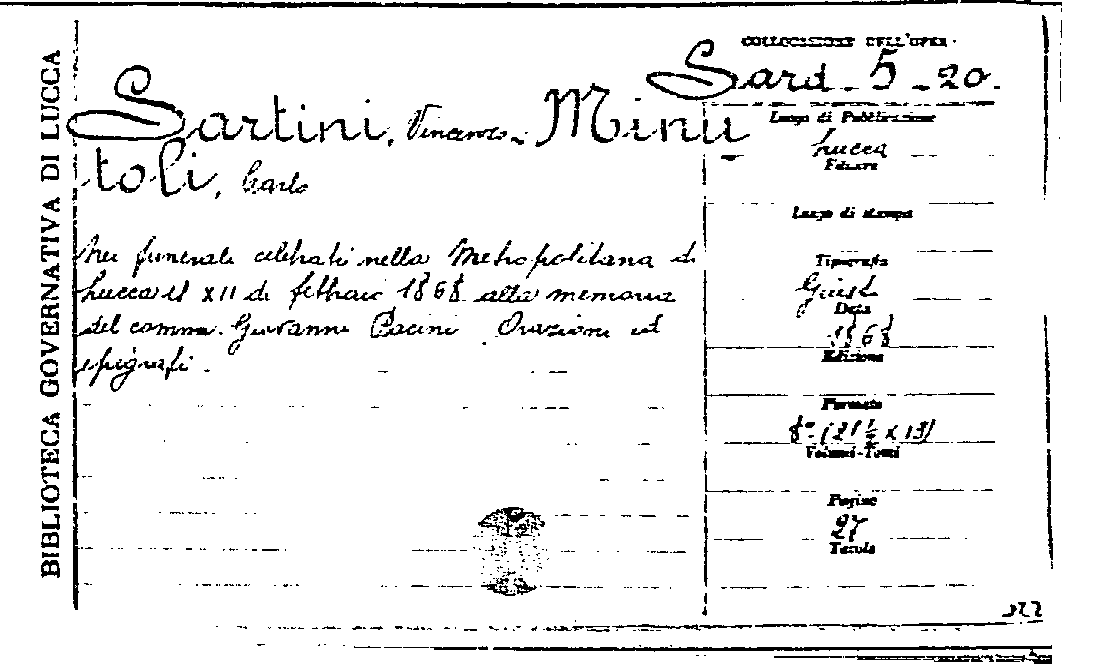 BIBLIOTECA GOVERNATIVA DI LUCCA
COLLOCAZIONE DELL'OPERA
Sard. 5 - 20.
Sartini, Vincenzo - Minu
toli, Carlo
Nei funerali celebrati nella Metropolitana di
Lucca il XII di febbraio 1868 alla memoria
del comm. Giovanni Pacini. Orazione ed
epigrafi.
Luogo di Pubblicazione
Lucca
Editore
Luogo di stampa
Tipografia
Giusti
Data
1868
Edizione
Formato
8° (21½ x 13)
Volumi-Tomi
Pagine
27
Tavole